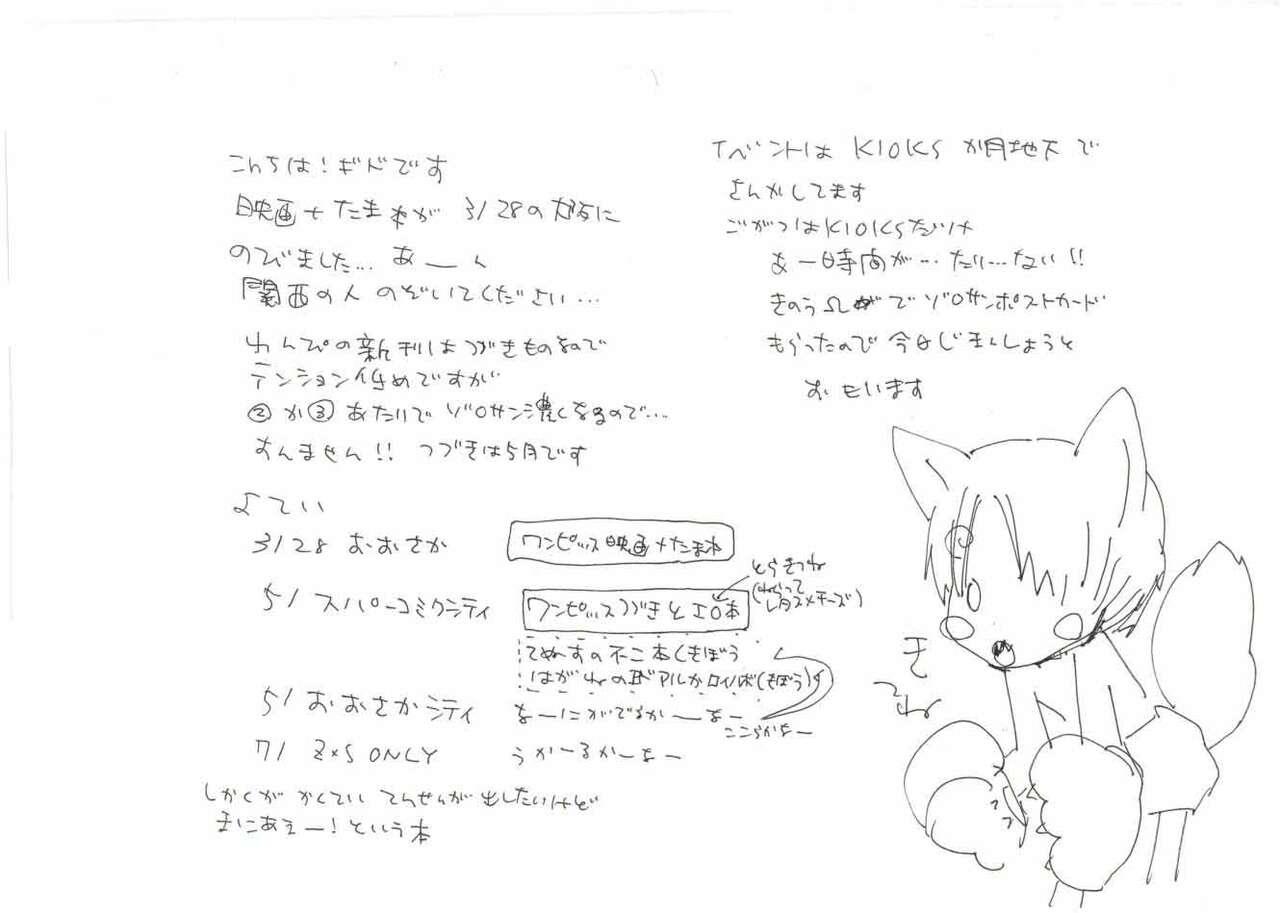 こんちは！ギドです
映画＋たまねが 3/28の大阪に
のびました… あーん
関西の人 のぞいてください…
わんぴの新刊はつづきものなので
テンション低めですが
②か③あたりでゾロサン濃くなるので…
すんません!! つづきは5月です
よてい
3/28 おおさか
ワンピッス映画＋たまね
5/ スパーコミクシティ
ワンピッスつづきとエロ本
とらきつね
(ねらって
レタスメチーズ)
てぬすの不二本(きぼう
はがねの アルかロイ本(きぼう)
5/ おおさかシティ
なーにがでるかーなー
ここらかなー
7/ Z×S ONLY
うかーるかーなー
しかくが かくてい てんせんが出したいけど
まにあえー！という本
イベントは K10KS が月地下で
さんかしてます
ごがつはK10KSだけ
あー時間が…たり…ない!!
きのう でゾロサンポストカード
もらったので 今日じまんしようと
おもいます
きつね